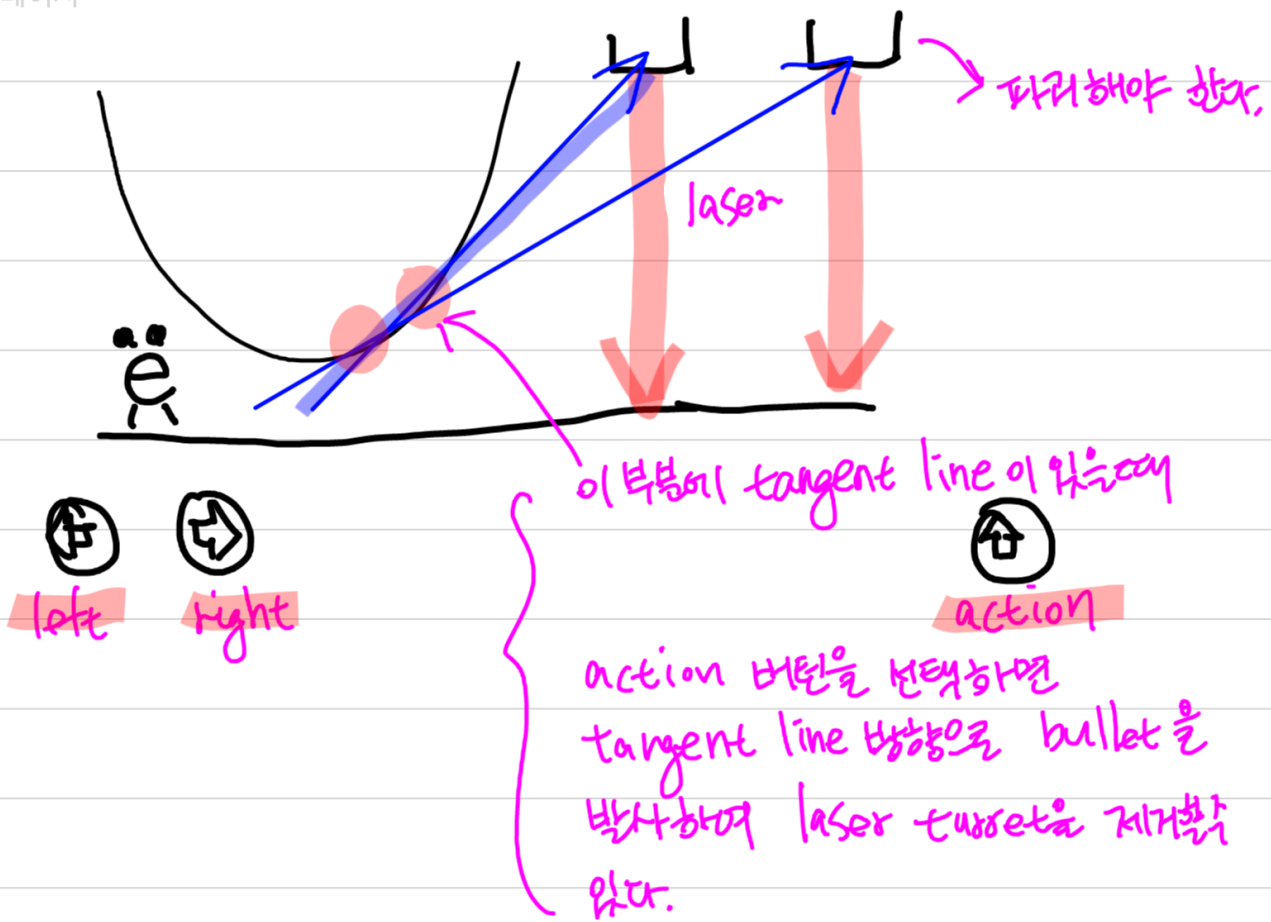 파괴해야 한다.
laser
e
이 부분에 tangent line 이 있을때
left
right
action
action 버턴을 선택하면
tangent line 방향으로 bullet을
발사하여 laser turret을 제거할수
있다.